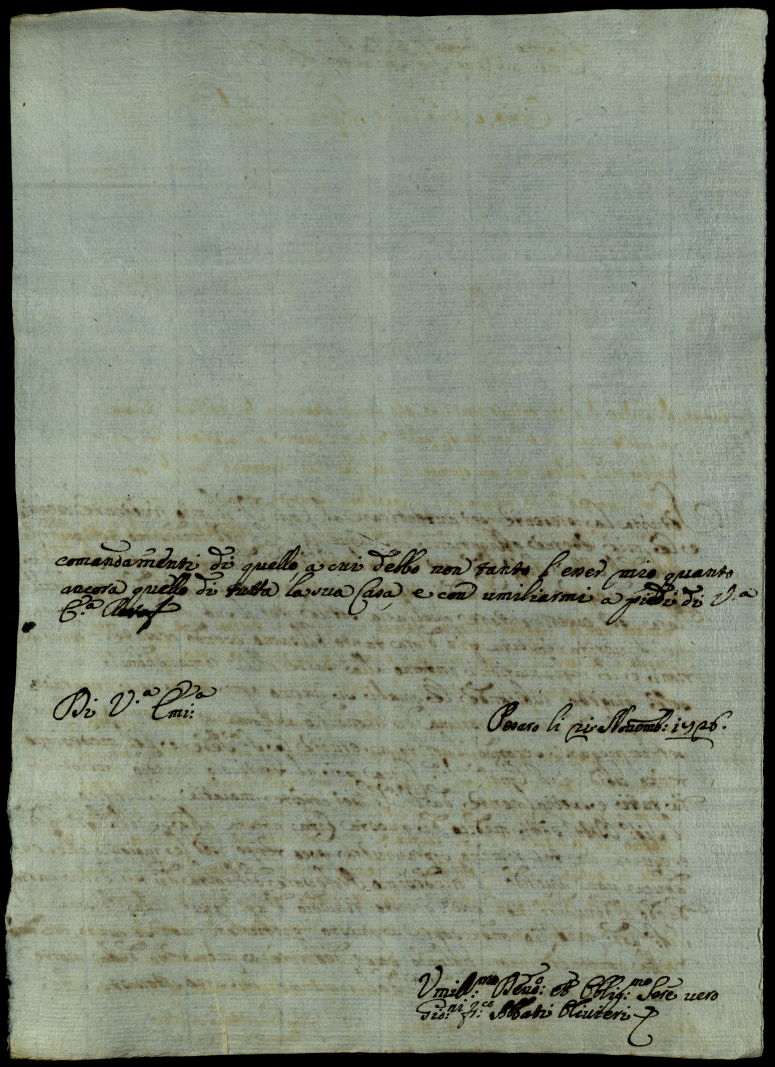 comandamenti di quello, a cui debbo non tanto l'esser mio quanto
ancora quello di tutta la sua Casa, e con umiliarmi a piedi di V.a
E.a
Di V.a Emi:a
Pesaro li 21 Novemb: 1726.
Umill:mo Devo: et Oblig:mo Sere vero
Gio:ni fr:co Abbati Oliuieri